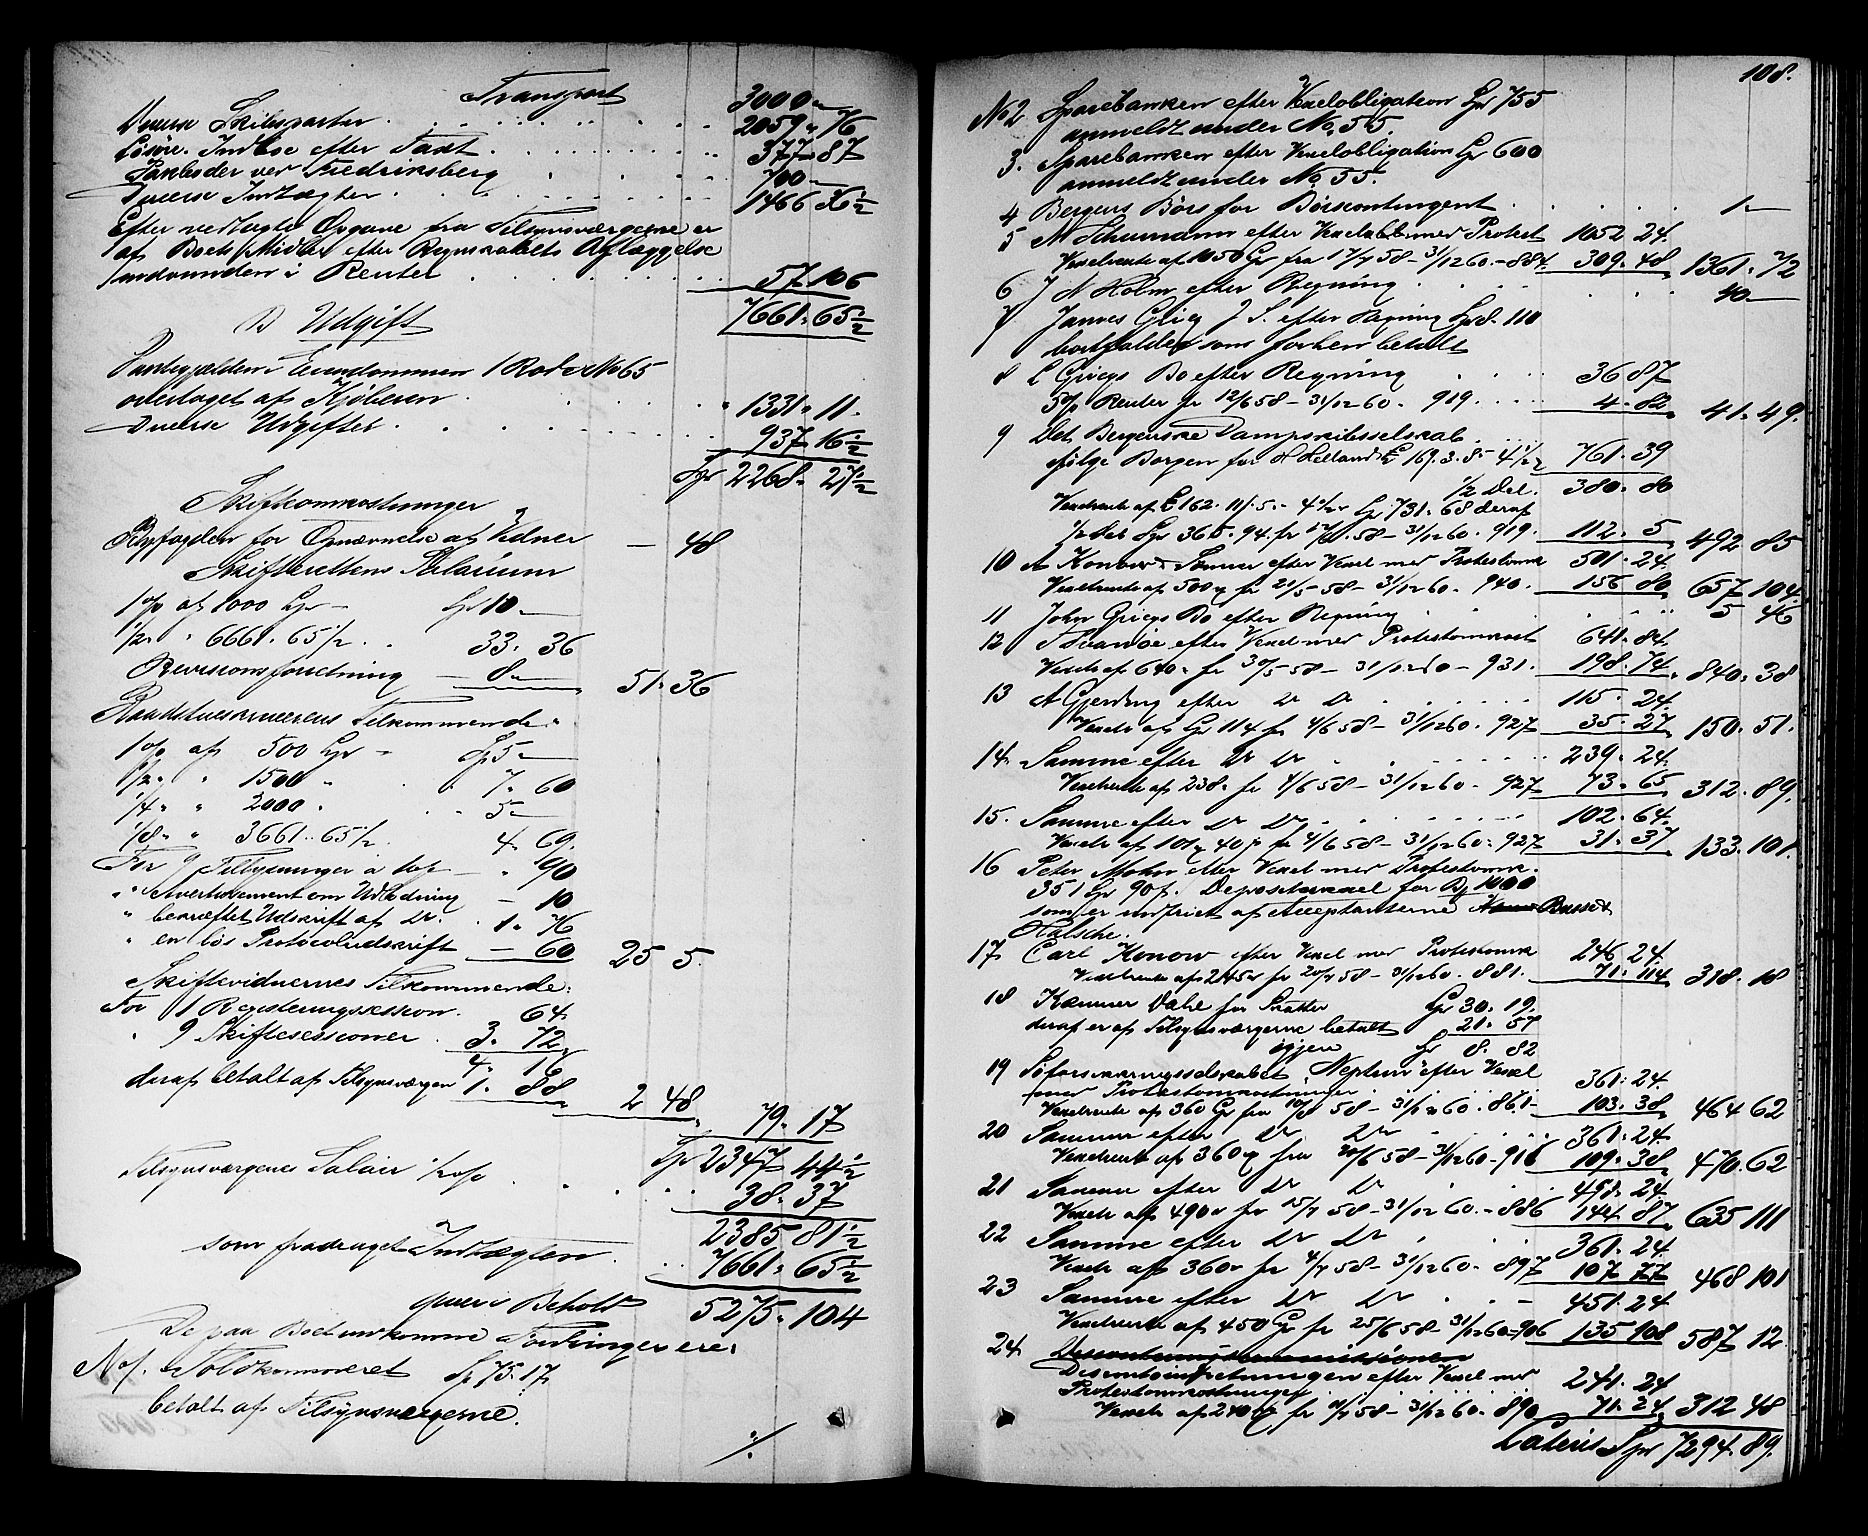 Transport 3000 "
Diverse Skibsparter 2059 " 76
Løsøre, Indboe efter Taxt 377 87
Søeboder ved Fredriksberg 700 "
Diverse Indtægter 1466 36½
Efter vedlagte Opgave fra Tilsynsværgerne er
af Boets Midler efter Regnskabets Aflæggelse
indvunden i Renter 57 106
7661 " 65½
B Udgift
Pantegjælden i Eiendommen 1 Rode No 65
overtaget af Kjøberen 1331 " 11
Diverse Udgifter 937 16½
Spd 2268 " 27½
Skifteomkostninger
Byfogden for Opnævnelse af Vidner — 48
Skifterettens Salarium
1 % af 1000 Spd — Spd 10 "
½ " " 6661. 65½ 33. 36
Revisionsforretning — 8 " 51. 36
Raadstueskriverens Tilkommende
1 % af 500 Spd — Sp 5 "
½ " " 1500 " 7. 60
¼ " " 2000 " 5 "
1/8 " " 3661. 65½ 4. 69.
For 9 Tilsigninger a 10 s — " 90
" Avertissement om Udlodning — 10
" bekræftet Udskrift af Do 1 " 76
" en løs Protocoludskrift — 60 25 5.
Skiftevidnernes Tilkommende:
For 1 Registreringssession 64
" 9 Skiftesessioner 3. 72
4. 16
deraf betalt af Tilsynsværgen 1. 88 2 48 79. 17
Spd 2347 44½
Tilsynsværgenes Salair 38. 37
2385 81½
som fradraget Indtægten 7661. 65½
giver i Behold 5275. 104
De paa Boet ankomne Fordringer ere:
No 1. Toldkammeret Sp 75. 17
betalt af Tilsynsværgerne.
./.
108.
No 2 Sparebanken efter Vexelobligation Spd 755
anmeldt under No 55.
3. Sparebanken efter Vexelobligation Spd 600
anmeldt under No 55.
4 Bergens Børs for Børscontingent 1 "
5 M Schumann efter Vexelobl. med Protest 1052 24.
Vexelrente af 1050 Spd fra 17/7 58 – 31/12 60. – 884. 309. 48 1361. 72
6 J N Holm efter Regning 40 —
7 James Grieg J. S. efter Regning Spd. 110
bortfalder som forhen betalt
8 C Griegs Bo efter Regning 36 87
5 % Renter fr 12/6 58 – 31/12 60. 919. 4. 82 41. 49.
9 Det Bergenske Dampskibsselskab
ifølge Borgen for H Helland £ 169. 3. 8 – 4½ 761. 39
½ Del. 380. 80
Vexelrente af £ 162. 11. 5. – 4½ Spd 731. 68 deraf
½ Del Spd 365. 94. fr 12/6 58 – 31/12 60. 919. 112. 5 492 85
10 A Konow & Sønner efter Vexel med Protestomk 501. 24.
Vexelrente af 500 fr 21/5 58 – 31/12 60. 940. 156 80 657 104
11 John Griegs Bo efter Regning 5 46
12 efter Vexel med Protestomkost 641. 84.
Vexelr af 640 " fr 30/5 58 – 31/12 60 – 931. 198. 74 840. 38
13 A Gjerding efter Do Do 115. 24.
Vexelr af Spd 114 fr 4/6 58 – 31/12 60. 927 35. 27 150. 51.
14. Samme efter Do Do 239. 24.
Vexelrente af 238. fr 4/6 58 – 31/12 60. 927 73. 65 312. 89.
15. Samme efter Do Do 102. 64.
Vexelr af 101 40 fr 4/6 58 – 31/12 60. 927 31. 37 133. 101.
16 Peter Mohn efter Vexel med Protestomk.
351 Spd 90 s. Depositovexel for 1000
som er indfriet af Acceptanterne
17 Carl Konow efter Vexel med Protestomk 246 24.
Vexelrente af 245 fr 20/7 58 – 31/12 60. 881. 71. 114 318. 18
18 Kæmner Dahl for Skatter Spd 30. 19.
deraf er af Tilsynsværgerne betalt 21. 57
igjen Sp 8. 82
19 Søforsikringsselskabet "Neptun" efter Vexel
med Protestomkostninger 361. 24.
Vexelrente af 360 Spd fra 10/8 58 – 31/12 60. 861 – 103. 38 464 62
20 Samme efter Do Do 361. 24
Vexelrente af 360 fra 58 – 31/12 60 – 916 109. 38 470. 62
21 Samme efter Do Do 24
Vexelr af 490 fr 15/7 58 – 31/12 60. – 886 144 87 635 111
22 Samme efter Do Do 361. 24.
Vexelr af 360 fr 4/7 58 – 31/12 60. 897 107 77 468 101
23 Samme efter Do Do 451. 24
Vexelrente af 450 Spd fr 25/6 58 – 31/12 60 – 906 135 108 587 12
24
Discontoindretningen efter Vexel med
Protestomkostninger 241. 24
Vexelr af 240 fr 11/7 58 – 31/12 60. 890 71. 24 312 48
Lateris Spd 7294. 89.